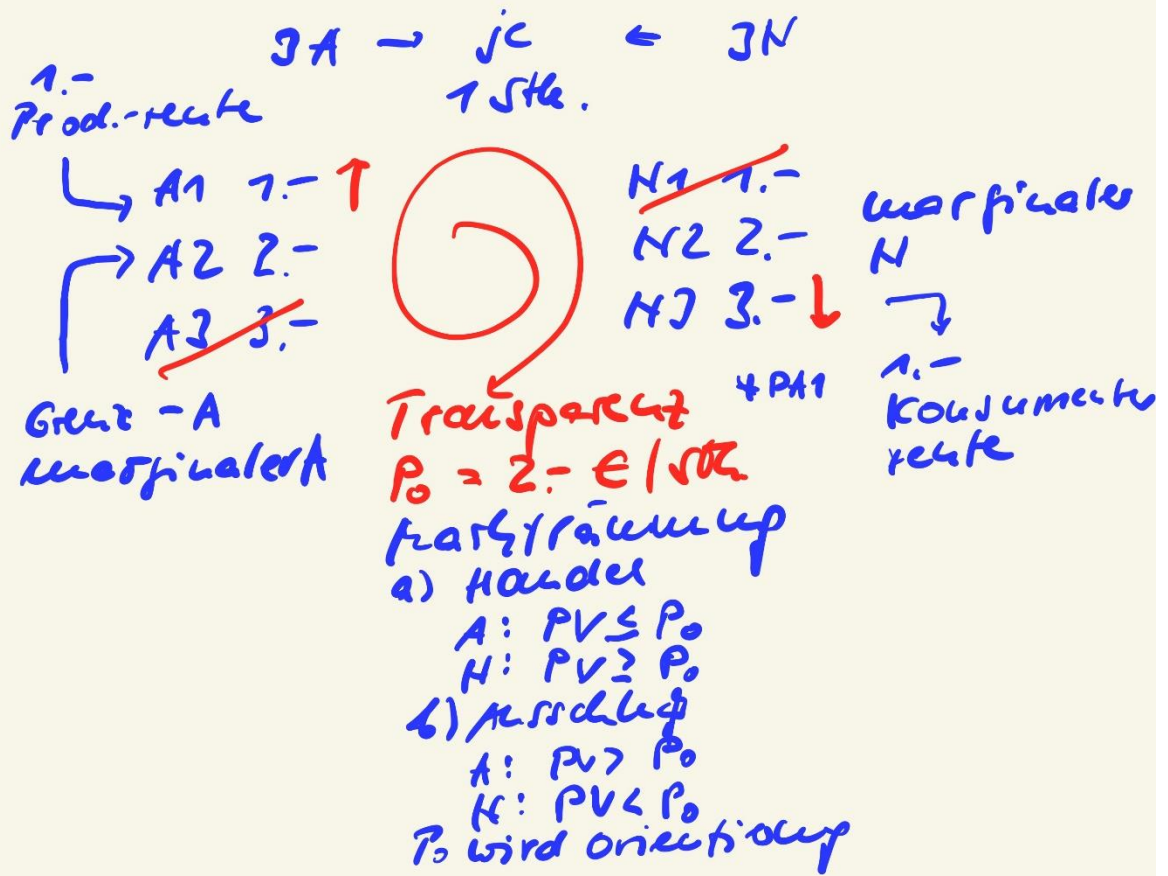 3A → je ← 3N
1 Stk.
1.-
Prod.-rente
A1 1.- ↑
A2 2.-
A3 3.-
Grenz-A
marginaler A
N1 1.-
N2 2.-
N3 3.- ↓
marginaler
N
1.-
Konsumenten
rente
≠PA1
Transparenz
P₀ = 2.- €/Stk
Markträumung
a) Handel
A: PV ≤ P₀
N: PV ≥ P₀
b) Ausschluß
A: PV > P₀
N: PV < P₀
P₀ wird Orientierung